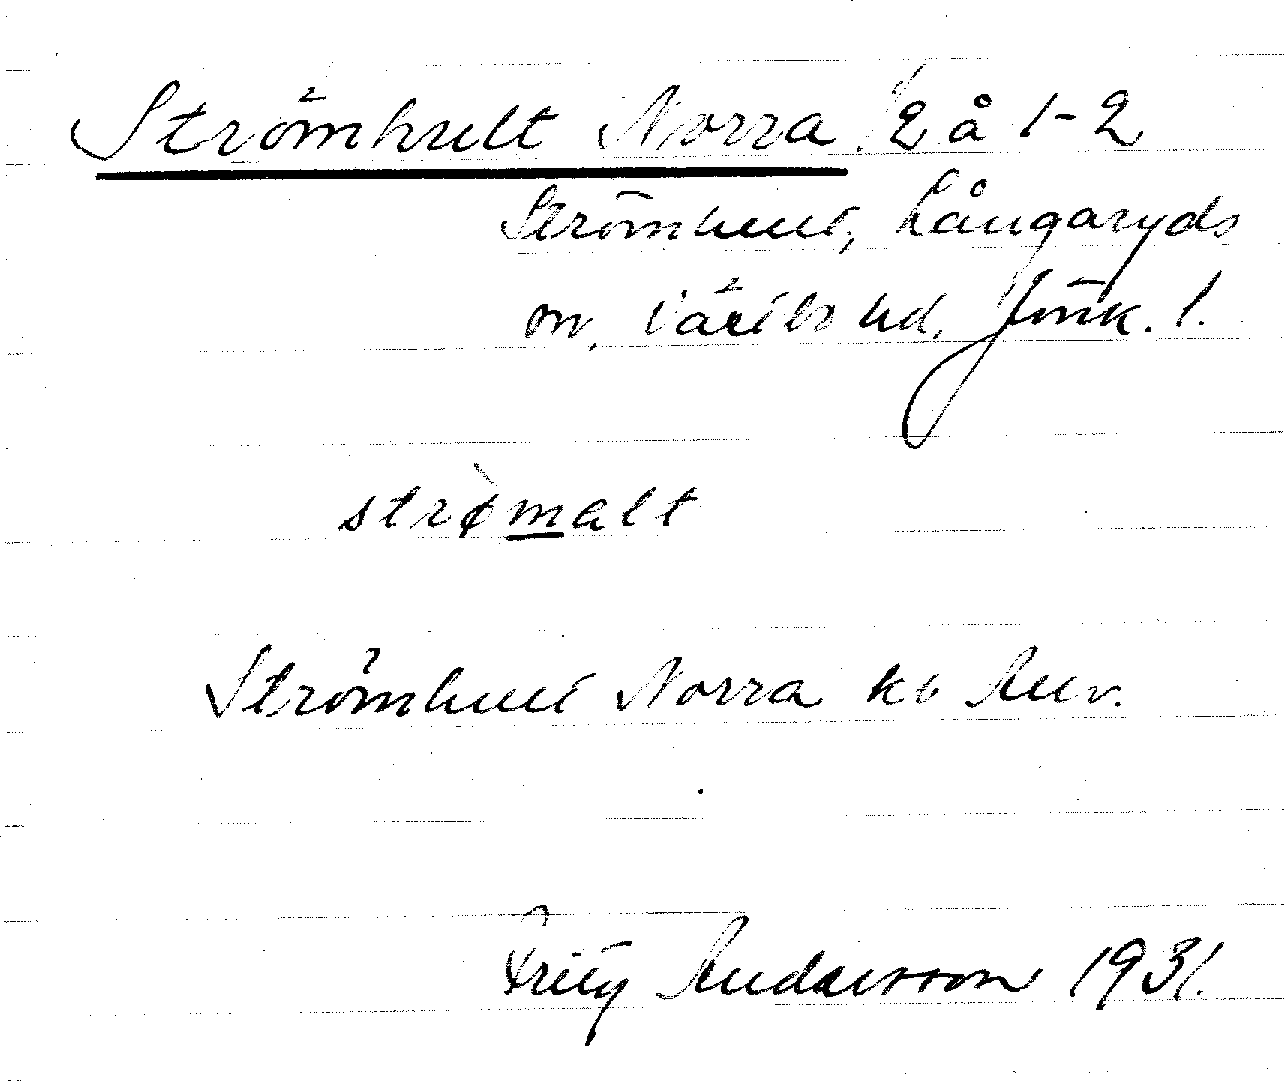 Strömhult Norra lg å 1-2
Strömhult, Långaryds
sn, Västbo hd, Jönk. l.
strømalt
Strömhult Norra kb Anv.
Fritz Andersson 1931.